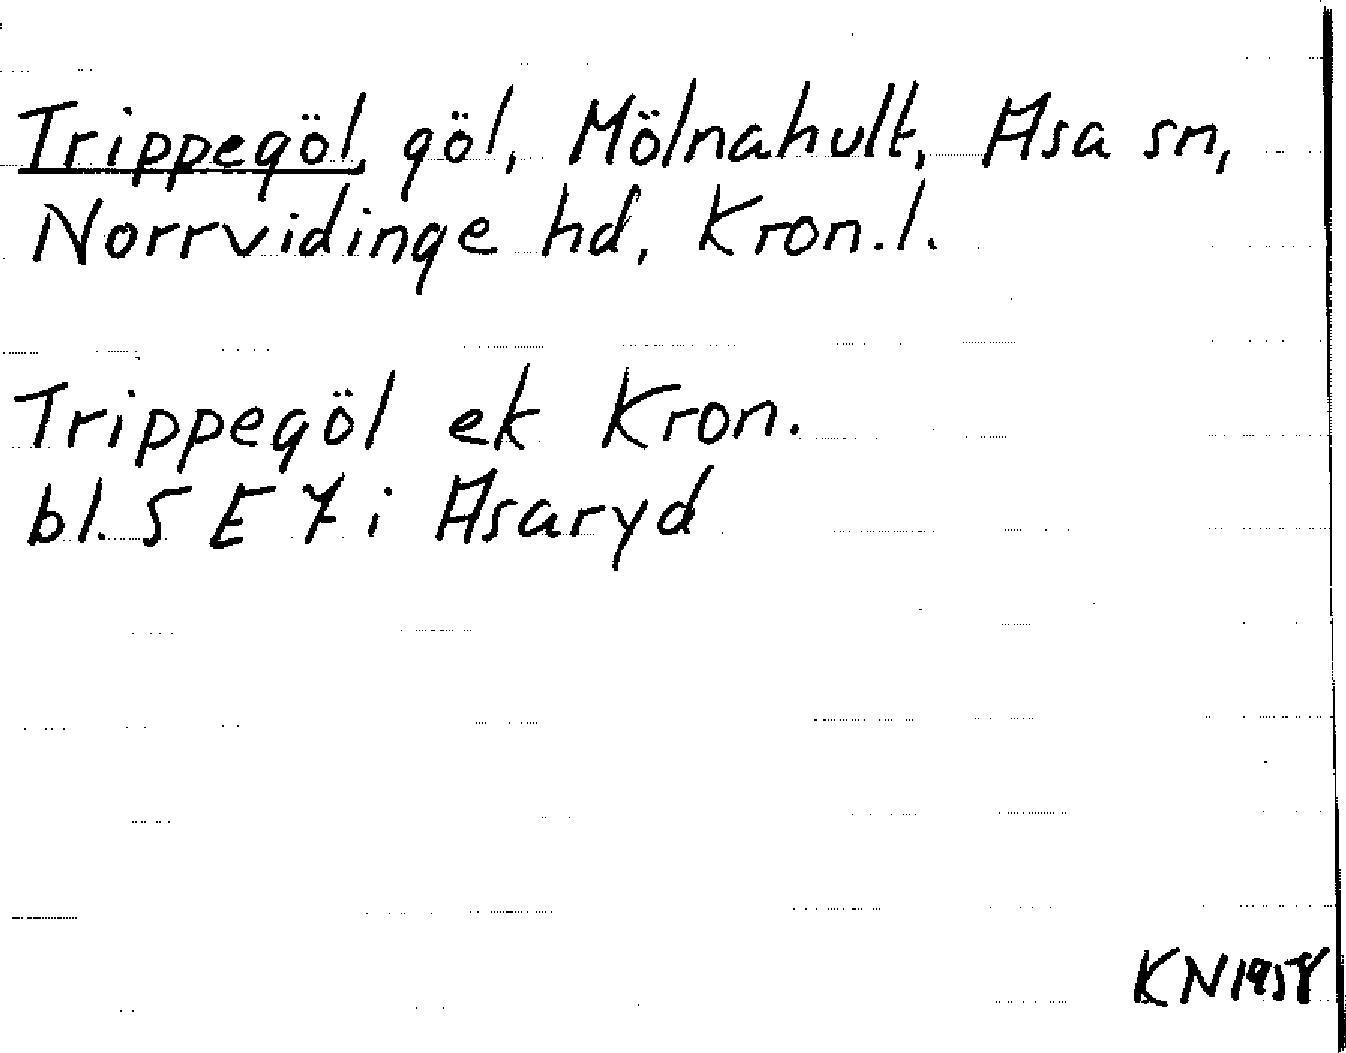 Trippegöl, göl, Mölnahult, Asa sn,
Norrvidinge hd, Kron.l.
Trippegöl ek Kron.
bl. 5 E 7 i Asaryd
KN 1958